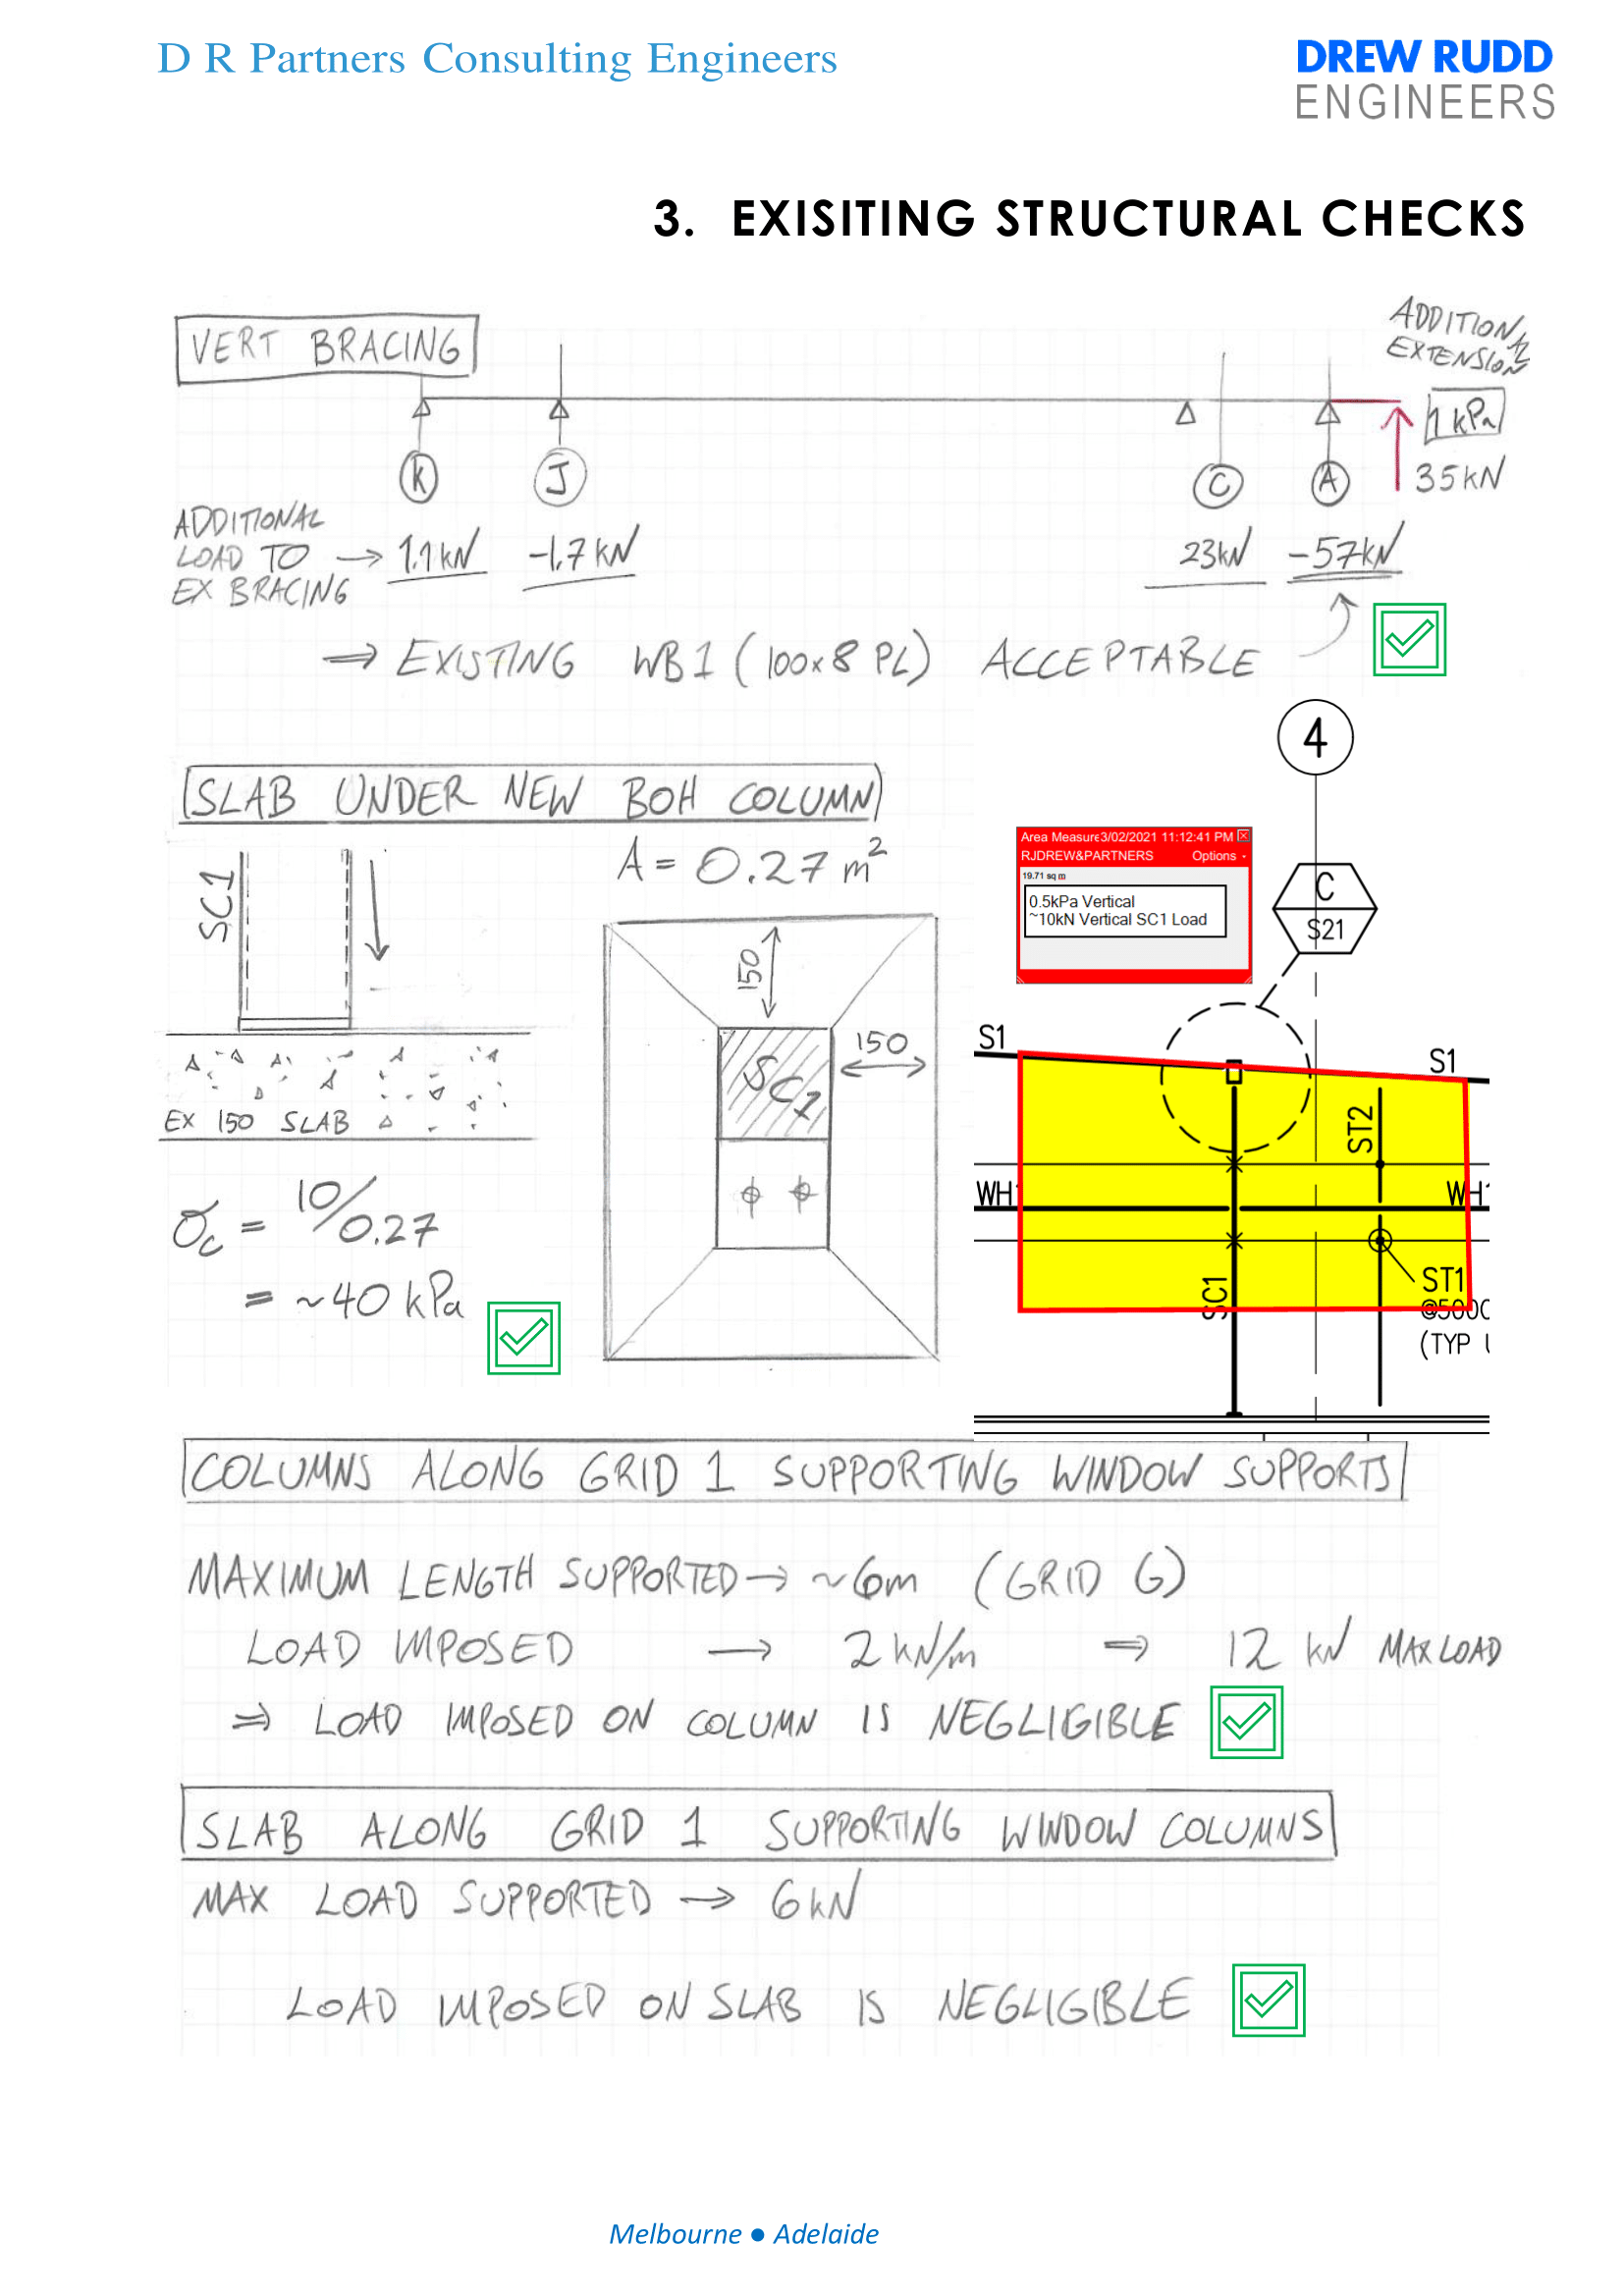 D R Partners Consulting Engineers
DREW RUDD
ENGINEERS
3. EXISITING STRUCTURAL CHECKS
VERT BRACING
ADDITIONAL
EXTENSION
1 kPa
35kN
K
J
C
A
ADDITIONAL
LOAD TO → 1.1kN -1.7kN 23kN -57kN
EX BRACING
⇒ EXISTING WB1 (100x8 PL) ACCEPTABLE
4
SLAB UNDER NEW BOH COLUMN
A = 0.27 m²
SC1
150
150
SC1
EX 150 SLAB
σc = 10/0.27
= ~40 kPa
Area Measure3/02/2021 11:12:41 PM
RJDREW&PARTNERS Options
19.71 sq m
0.5kPa Vertical
~10kN Vertical SC1 Load
C
S21
S1
S1
ST2
WH1
WH1
SC1
ST1
@5000
(TYP U
COLUMNS ALONG GRID 1 SUPPORTING WINDOW SUPPORTS
MAXIMUM LENGTH SUPPORTED → ~6m (GRID G)
LOAD IMPOSED → 2 kN/m ⇒ 12 kN MAX LOAD
⇒ LOAD IMPOSED ON COLUMN IS NEGLIGIBLE
SLAB ALONG GRID 1 SUPPORTING WINDOW COLUMNS
MAX LOAD SUPPORTED → 6kN
LOAD IMPOSED ON SLAB IS NEGLIGIBLE
Melbourne ● Adelaide